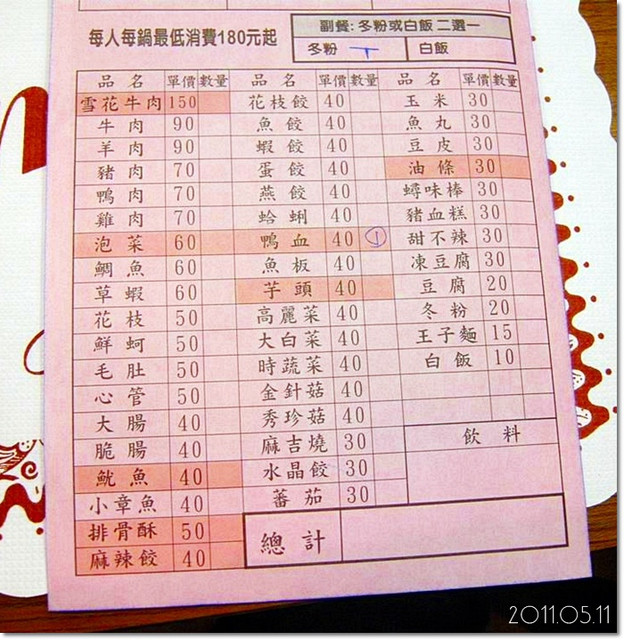 每人每鍋最低消費180元起
副餐: 冬粉或白飯 二選一
冬粉 白飯
品名 單價 數量 品名 單價 數量 品名 單價 數量
雪花牛肉 150 花枝餃 40 玉米 30
牛肉 90 魚餃 40 魚丸 30
羊肉 90 蝦餃 40 豆皮 30
豬肉 70 蛋餃 40 油條 30
鴨肉 70 燕餃 40 蟳味棒 30
雞肉 70 蛤蜊 40 豬血糕 30
泡菜 60 鴨血 40 1 甜不辣 30
鯛魚 60 魚板 40 凍豆腐 30
草蝦 60 芋頭 40 豆腐 20
花枝 50 高麗菜 40 冬粉 20
鮮蚵 50 大白菜 40 王子麵 15
毛肚 50 時蔬菜 40 白飯 10
心管 50 金針菇 40
大腸 40 秀珍菇 40
脆腸 40 麻吉燒 30 飲料
魷魚 40 水晶餃 30
小章魚 40 蕃茄 30
排骨酥 50 總計
麻辣餃 40
2011.05.11